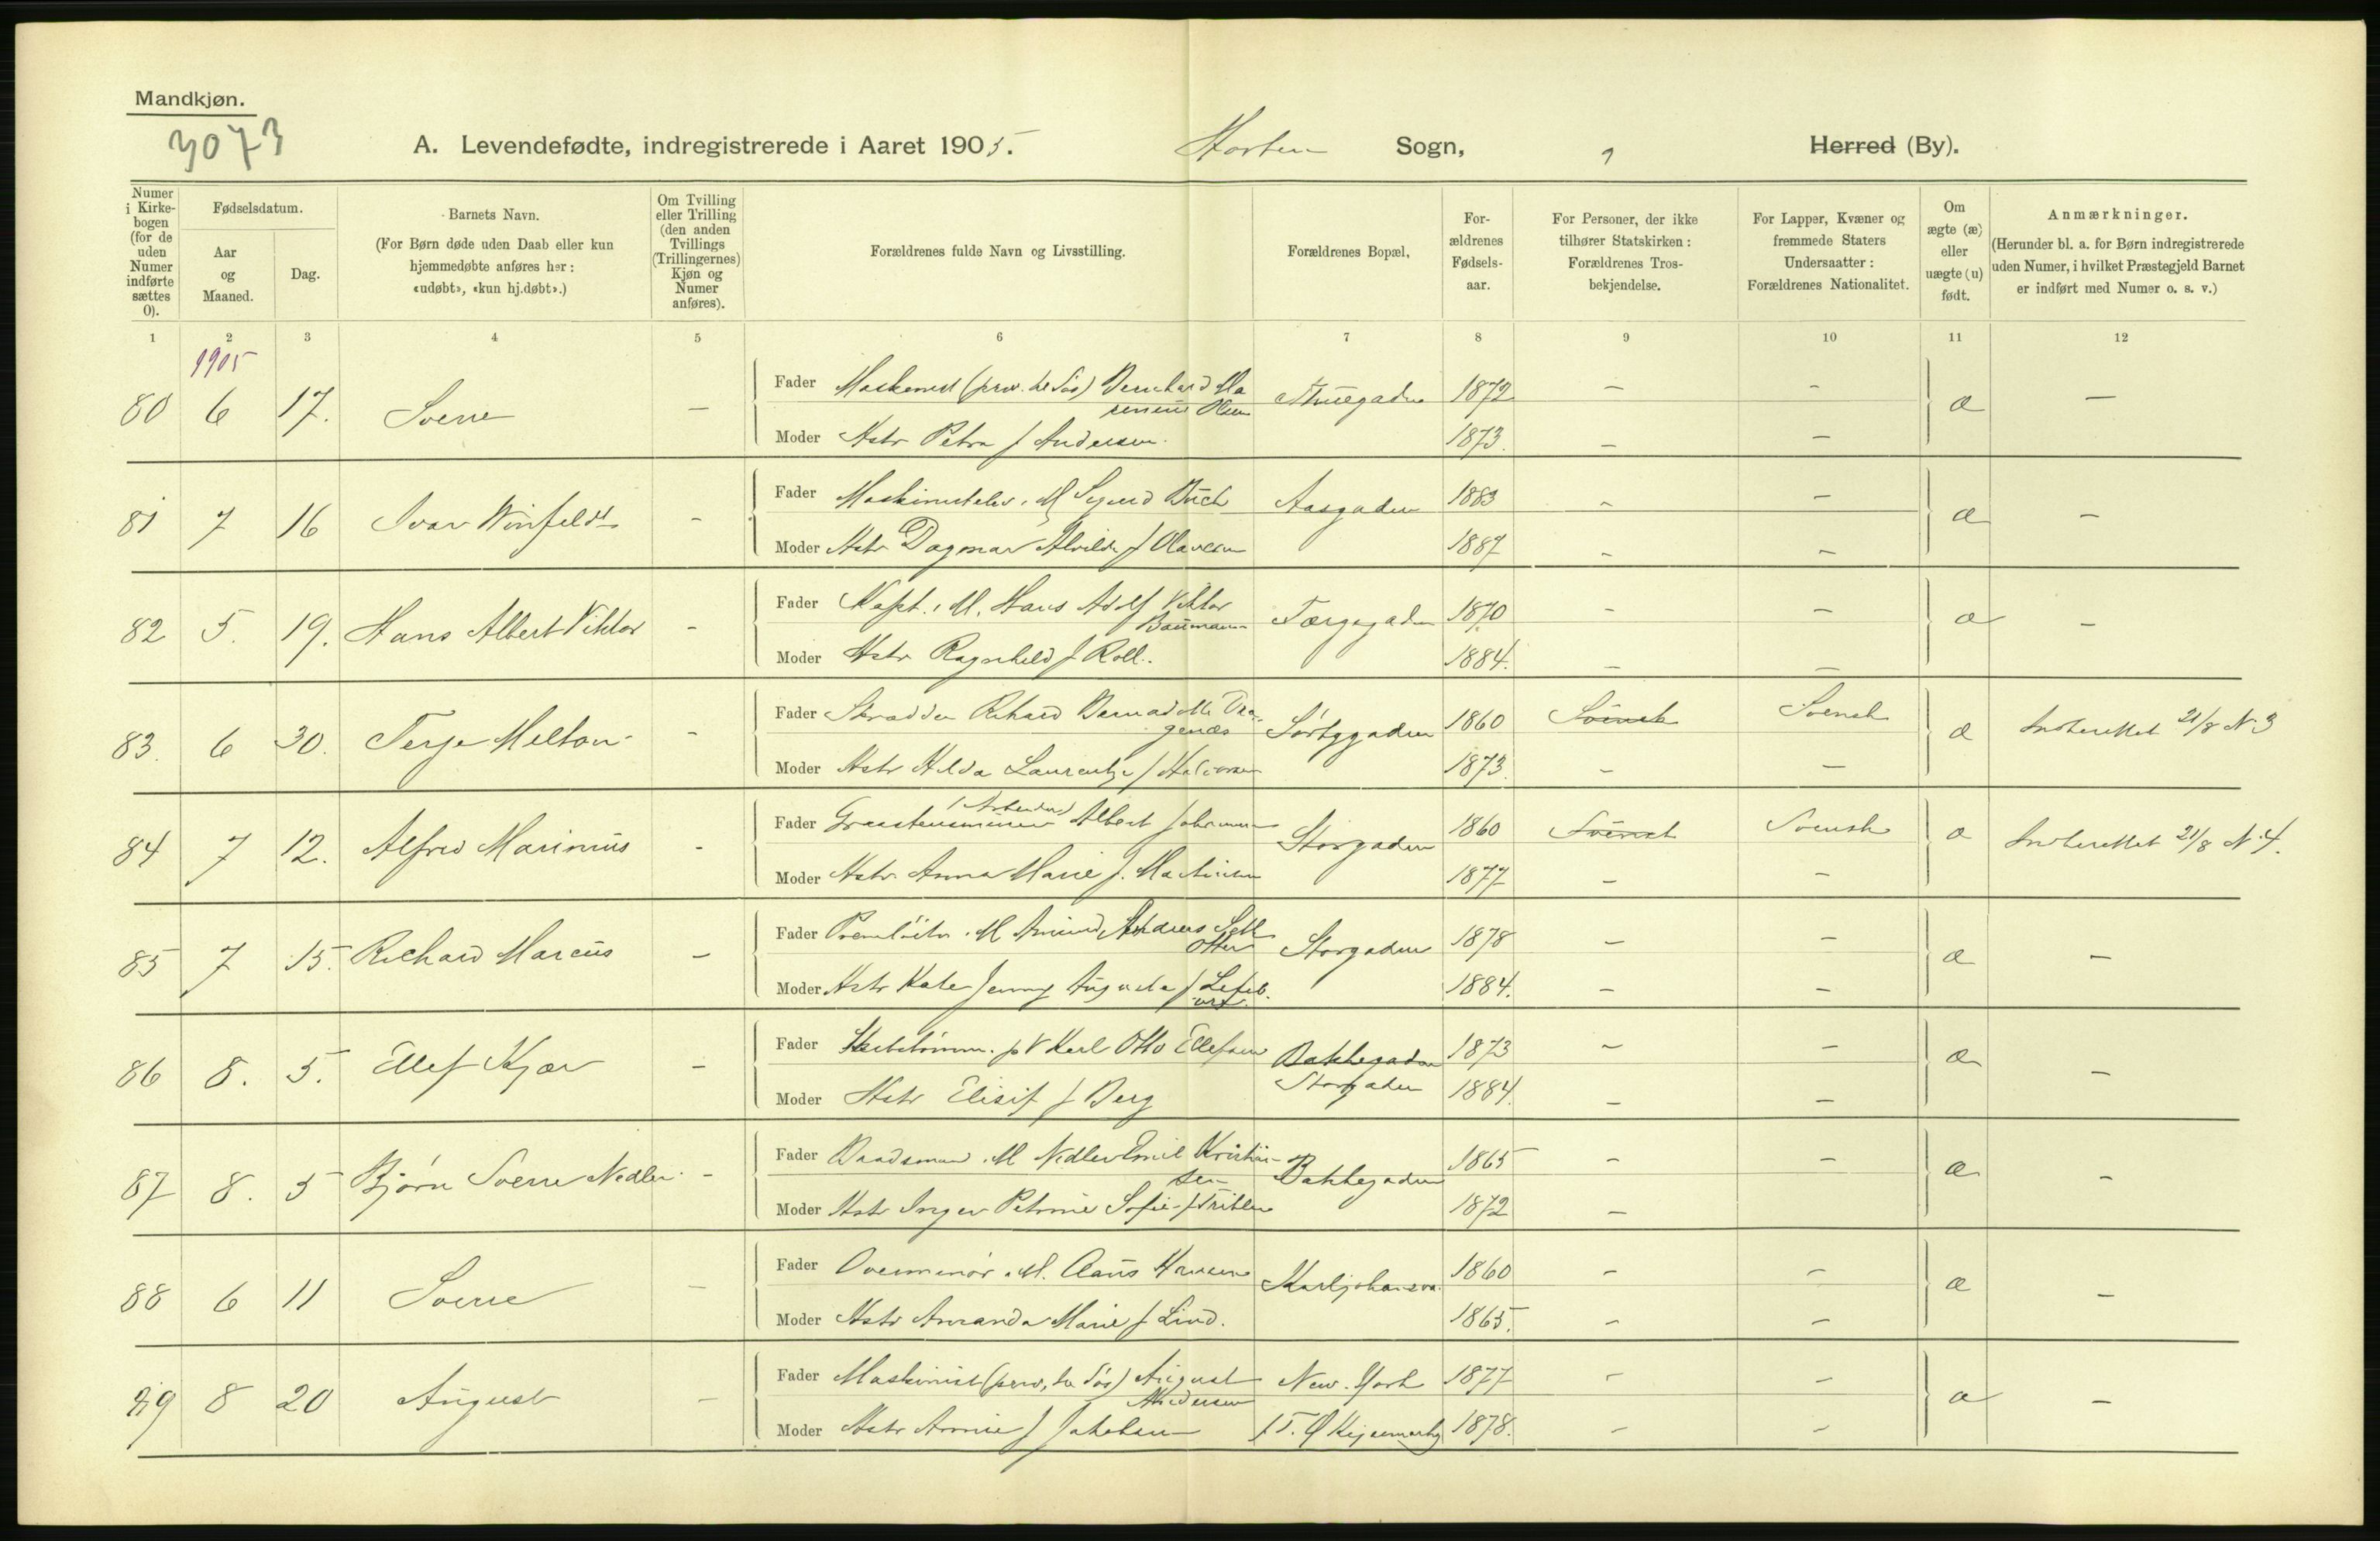 Mandkjøn.
3073
A. Levendefødte, indregistrerede i Aaret 1905. Horten Sogn, Herred (By).
Numer i Kirkebogen (for de uden Numer indførte sættes 0).
Fødselsdatum.
Aar og Maaned.
Dag.
Barnets Navn.
(For Børn døde uden Daab eller kun hjemmedøbte anføres her: «udøbt», «kun hj.døbt».)
Om Tvilling eller Trilling (den anden Tvillings (Trillingernes) Kjøn og Numer anføres).
Forældrenes fulde Navn og Livsstilling.
Forældrenes Bopæl,
Forældrenes Fødselsaar.
For Personer, der ikke tilhører Statskirken: Forældrenes Trosbekjendelse.
For Lapper, Kvæner og fremmede Staters Undersaatter: Forældrenes Nationalitet.
Om ægte (æ) eller uægte (u) født.
Anmærkninger.
(Herunder bl. a. for Børn indregistrerede uden Numer, i hvilket Præstegjeld Barnet er indført med Numer o. s. v.)
1 2 3 4 5 6 7 8 9 10 11 12
1905
80 6 17. Sverre — Fader Maskinist (priv. tilsøs) Bernhard Marenius Olsen 1872 — — æ —
Moder Hstr Petra f Andersen. 1873. — —
81 7 16 Ivar Winfeldt - Fader M Sigurd Buch Aasgaden 1883 - - æ -
Moder Hstr Dagmar Alvilde f Olavesen 1887 - -
82 5. 19. Hans Albert Viktor - Fader Kapt. i M. Hans Adolf Viktor Baumann 1870 - - æ -
Moder Hstr Ragnhild f Roll. 1884. - -
83. 6 30. Terje Melton - Fader Skrædder Rikard Bernadotte 1860 Svensk Svensk æ 21/8 N 3
Moder Hstr Hilda Laurentze f Halvorsen 1873. - -
84 7 12. Alfred Marinius - Fader (Arbeider) Albert Johansen Storgaden 1860 Svensk Svensk æ 21/8 N 4.
Moder Hstr. Anna Marie f. Martinsen 1877 - -
85 7 15. Richard Marcus - Fader M Amund Andreas Otter Storgaden 1878 - - æ -
Moder Hstr Jenny Augusta f 1884. - -
86 8. 5. Ellef Kjær - Fader Karl Otto Ellefsen Bakkegaden 1873 - - æ -
Storgaden
Moder Hstr Elisif f Berg 1884. - -
87 8. 5 Bjørn Sverre Nedler - Fader Baadsmand M Nedler Emil Kristiansen Bakkegaden 1865 - - æ -
Moder Hstr Inger Petrine Sofie f 1872 -
88 6 11 Sverre - Fader Overminør i M. Claus Hansen Karljohansv. 1860 - - æ -
Moder Hstr Amanda Marie f Lind. 1865. - -
89 8 20 August - Fader Maskinist (priv, tilsøs) August Andersen New York 1877 - - æ -
Moder Hstr Annie f Jakobsen 1878. - -